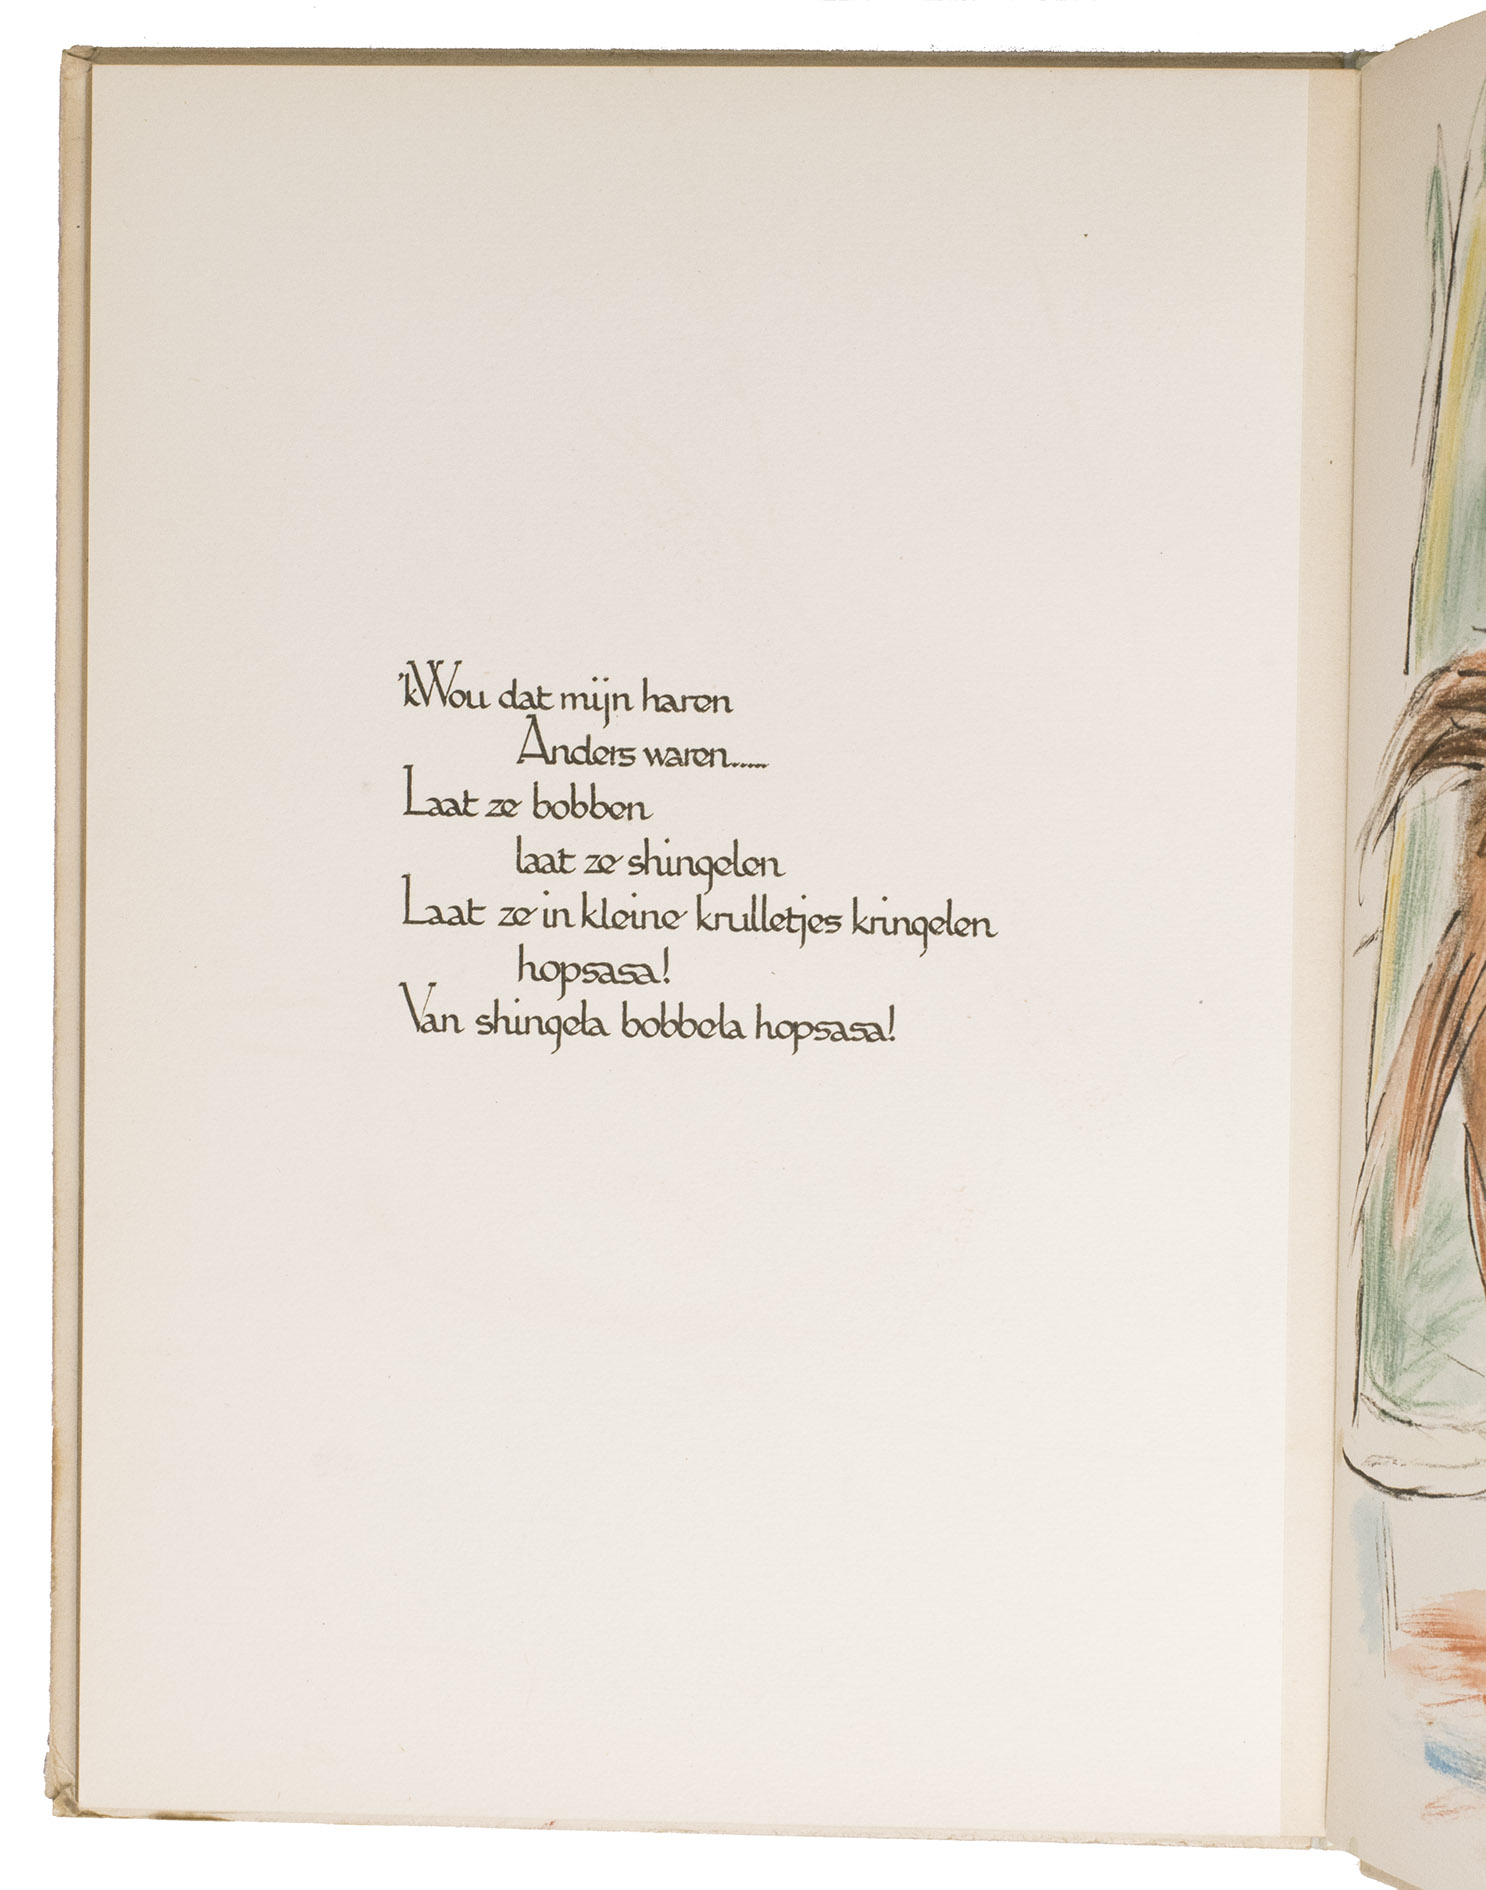 'kWou dat mijn haren
Anders waren.....
Laat ze bobben
laat ze shingelen
Laat ze in kleine krulletjes kringelen
hopsasa!
Van shingela bobbela hopsasa!